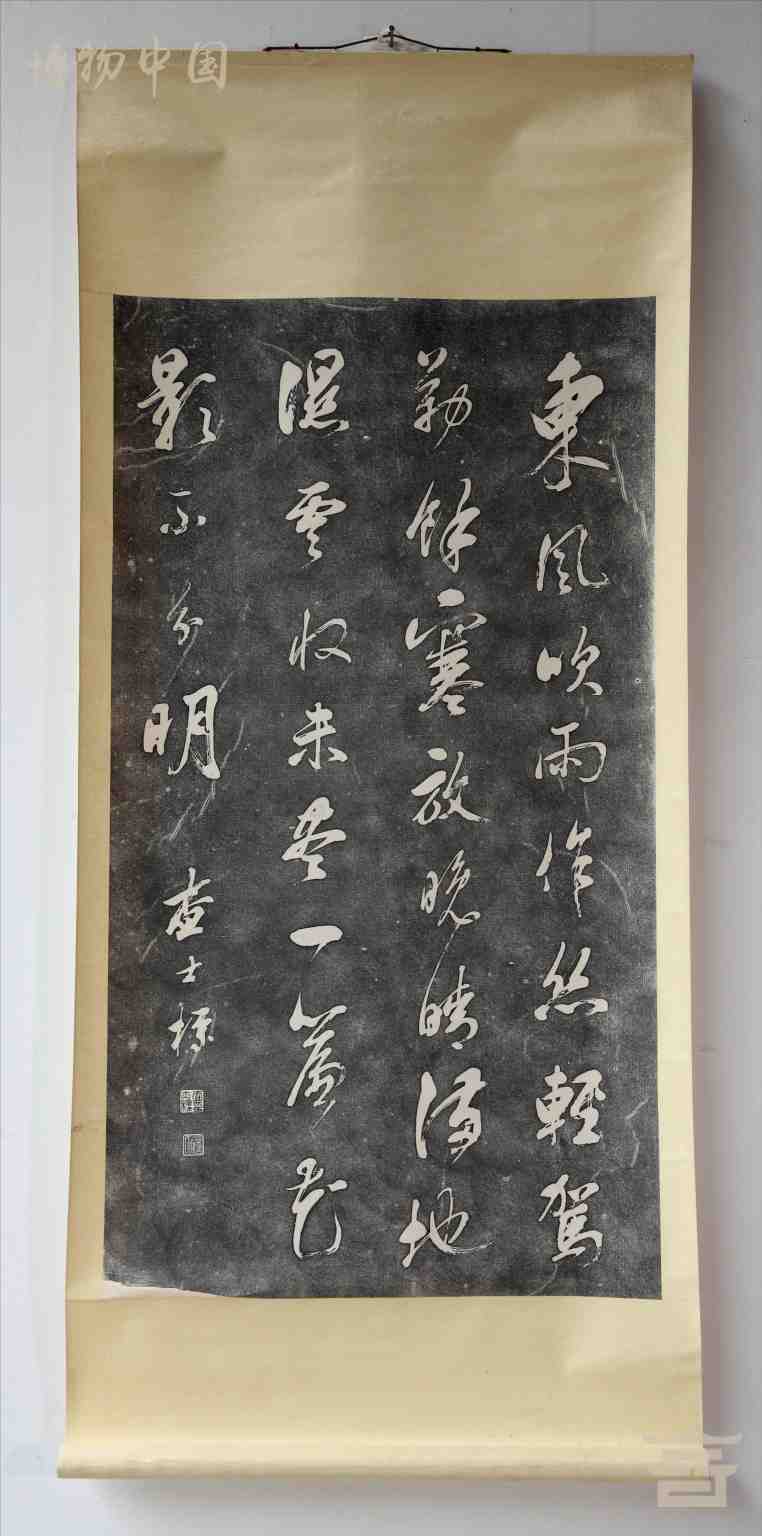 博物中国
東風吹雨作絲輕駕
勒餘寒放晚晴滿地
濕雲收未盡一簾花
影不分明
查士標